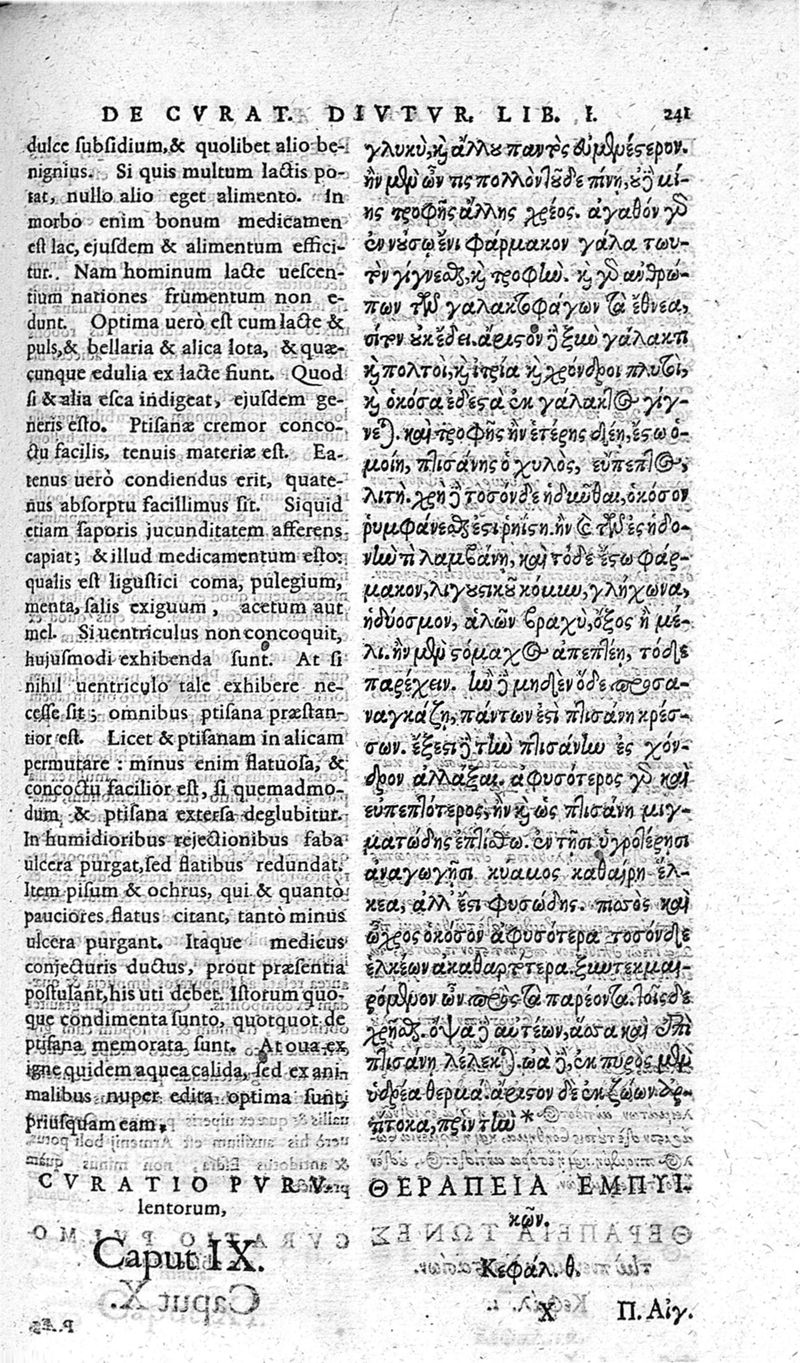 DE CVRAT. DIVTVR. LIB. I. 241
dulce subsidium, & quolibet alio be-
nignius. Si quis multum lactis po-
tat, nullo alio eget alimento. In
morbo enim bonum medicamen
est lac, ejusdem & alimentum effici-
tur. Nam hominum lacte uescen-
tium nationes frumentum non e-
dunt. Optima uerò est cum lacte &
puls, & bellaria & alica lota, & quæ-
cunque edulia ex lacte fiunt. Quod
si & alia esca indigeat, ejusdem ge-
neris esto. Ptisanæ cremor conco-
ctu facilis, tenuis materiæ est. Ea-
tenus uerò condiendus erit, quate-
nus absorptu facillimus sit. Siquid
etiam saporis jucunditatem afferens
capiat; & illud medicamentum esto:
qualis est ligustici coma, pulegium,
menta, salis exiguum, acetum aut
mel. Si uentriculus non concoquit,
hujusmodi exhibenda sunt. At si
nihil uentriculo tale exhibere ne-
cesse sit; omnibus ptisana præstan-
tior est. Licet & ptisanam in alicam
permutare: minus enim flatuosa, &
concoctu facilior est, si quemadmo-
dum & ptisana extersa deglubitur.
In humidioribus rejectionibus faba
ulcera purgat, sed flatibus redundat.
Item pisum & ochrus, qui & quantò
pauciores flatus citant, tantò minus
ulcera purgant. Itaque medicus
conjecturis ductus, prout præsentia
postulant, his uti debet. Istorum quo-
que condimenta sunto, quotquot de
ptisana memorata sunt. At oua ex
igne quidem aquea calida, sed ex ani
malibus nuper edita optima sunt,
priusquam eam,
CVRATIO PVRV-
lentorum,
Caput IX.
γλυκὺ, καὶ ἄλλου παντὸς εὐμενέστερον.
ἢν μὲν ὦν τις πολλὸν τοῦδε πίνῃ, οὐδεμί-
ης τροφῆς ἄλλης χρέος. ἀγαθόν γὰρ
ἐν νούσῳ ἔνι φάρμακον γάλα τωυ-
τὸν γίγνεσθαι, καὶ τροφίω. καὶ γὰρ ἀνθρώ-
πων τῶν γαλακτοφάγων τὰ ἔθνεα,
σῖτον οὐκ ἔδει. ἄριστον δὲ ξιω γάλακτι
καὶ πολτοὶ, καὶ ἰτρία καὶ χρόνδροι πλυτοὶ,
καὶ ὁκόσα ἐδεστὰ ἐκ γάλακτος γίγ-
νεται. καὶ τροφῆς ἢν ἑτέρης δέῃ, ἔστω ὁ-
μοίη, πτισάνης ὁ χυλὸς, εὔπεπτος,
λιτή. χρὴ δὲ τοσόνδε ἡδιωθαι, ὁκόσον
ῥυμφάνεσθαι ἐστι ῥηίστη. ἢν δὲ τῶν ἐς ἡδο-
νίω τὶ λαμβάνῃ, καὶ τόδε ἔστω φάρ-
μακον, λιγυστικοῦ κόμιω, γλήχωνα,
ἡδύοσμον, ἁλῶν βραχὺ, ὄξος ἢ μέ-
λι. ἢν μὲν στόμαχος ἀπεπτέῃ, τόδε
παρέχειν. ἰω δὲ μηδὲν ὅδε προσα-
ναγκάζῃ, πάντων ἐστὶ πτισάνη κρέσ-
σων. ἔξεστι δὲ τίω πτισάνίω ἐς χόν-
δρον ἀλλάξαι. ἀφυσότερος γὰρ καὶ
εὐπεπτότερος, ἢν καὶ ὡς πτισάνη μιγ-
ματώδης ἐπλίσθω. ἐν τῇσι ὑγροτέρῃσι
ἀναγωγῇσι κυαμος καθαίρῃ ἕλ-
κεα, ἀλλ᾽ ἔστι φυσώδης. πισὸς καὶ
ὦχρος ὁκόσον ἀφυσότερα τοσόνδε
ἑλκέων ἀκαθαρτότερα. ξιωτεκμαι-
ρόμενον ὦν πρὸς τὰ παρεόντα. τοῖσδε
χρῆσθαι. ὄψα δὲ αὐτέων, ἅσσα καὶ ἐπὶ
πτισάνῃ λέλεκται. ὠὰ δὲ, ἐκ πυρὸς μὲν
ὑδρέα θερμα. ἄριστον δὲ ἐκ ζώων ἀρ-
τίτοκα, πρὶν τίω *
ΘΕΡΑΠΕΙΑ ΕΜΠΥΙ-
κῶν.
Κεφάλ. θ.
X Π. Αἰγ.